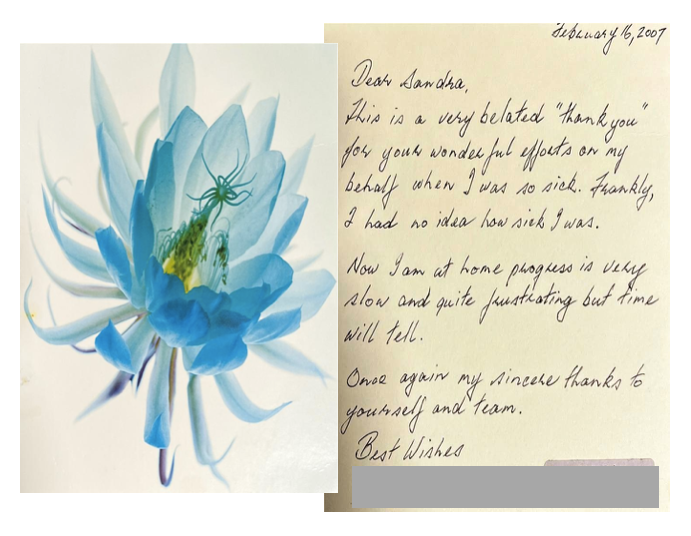 February 16, 2007
Dear Sandra,
This is a very belated "thank you"
for your wonderful efforts on my
behalf when I was so sick. Frankly,
I had no idea how sick I was.
Now I am at home progress is very
slow and quite frustrating but time
will tell.
Once again my sincere thanks to
yourself and team.
Best Wishes